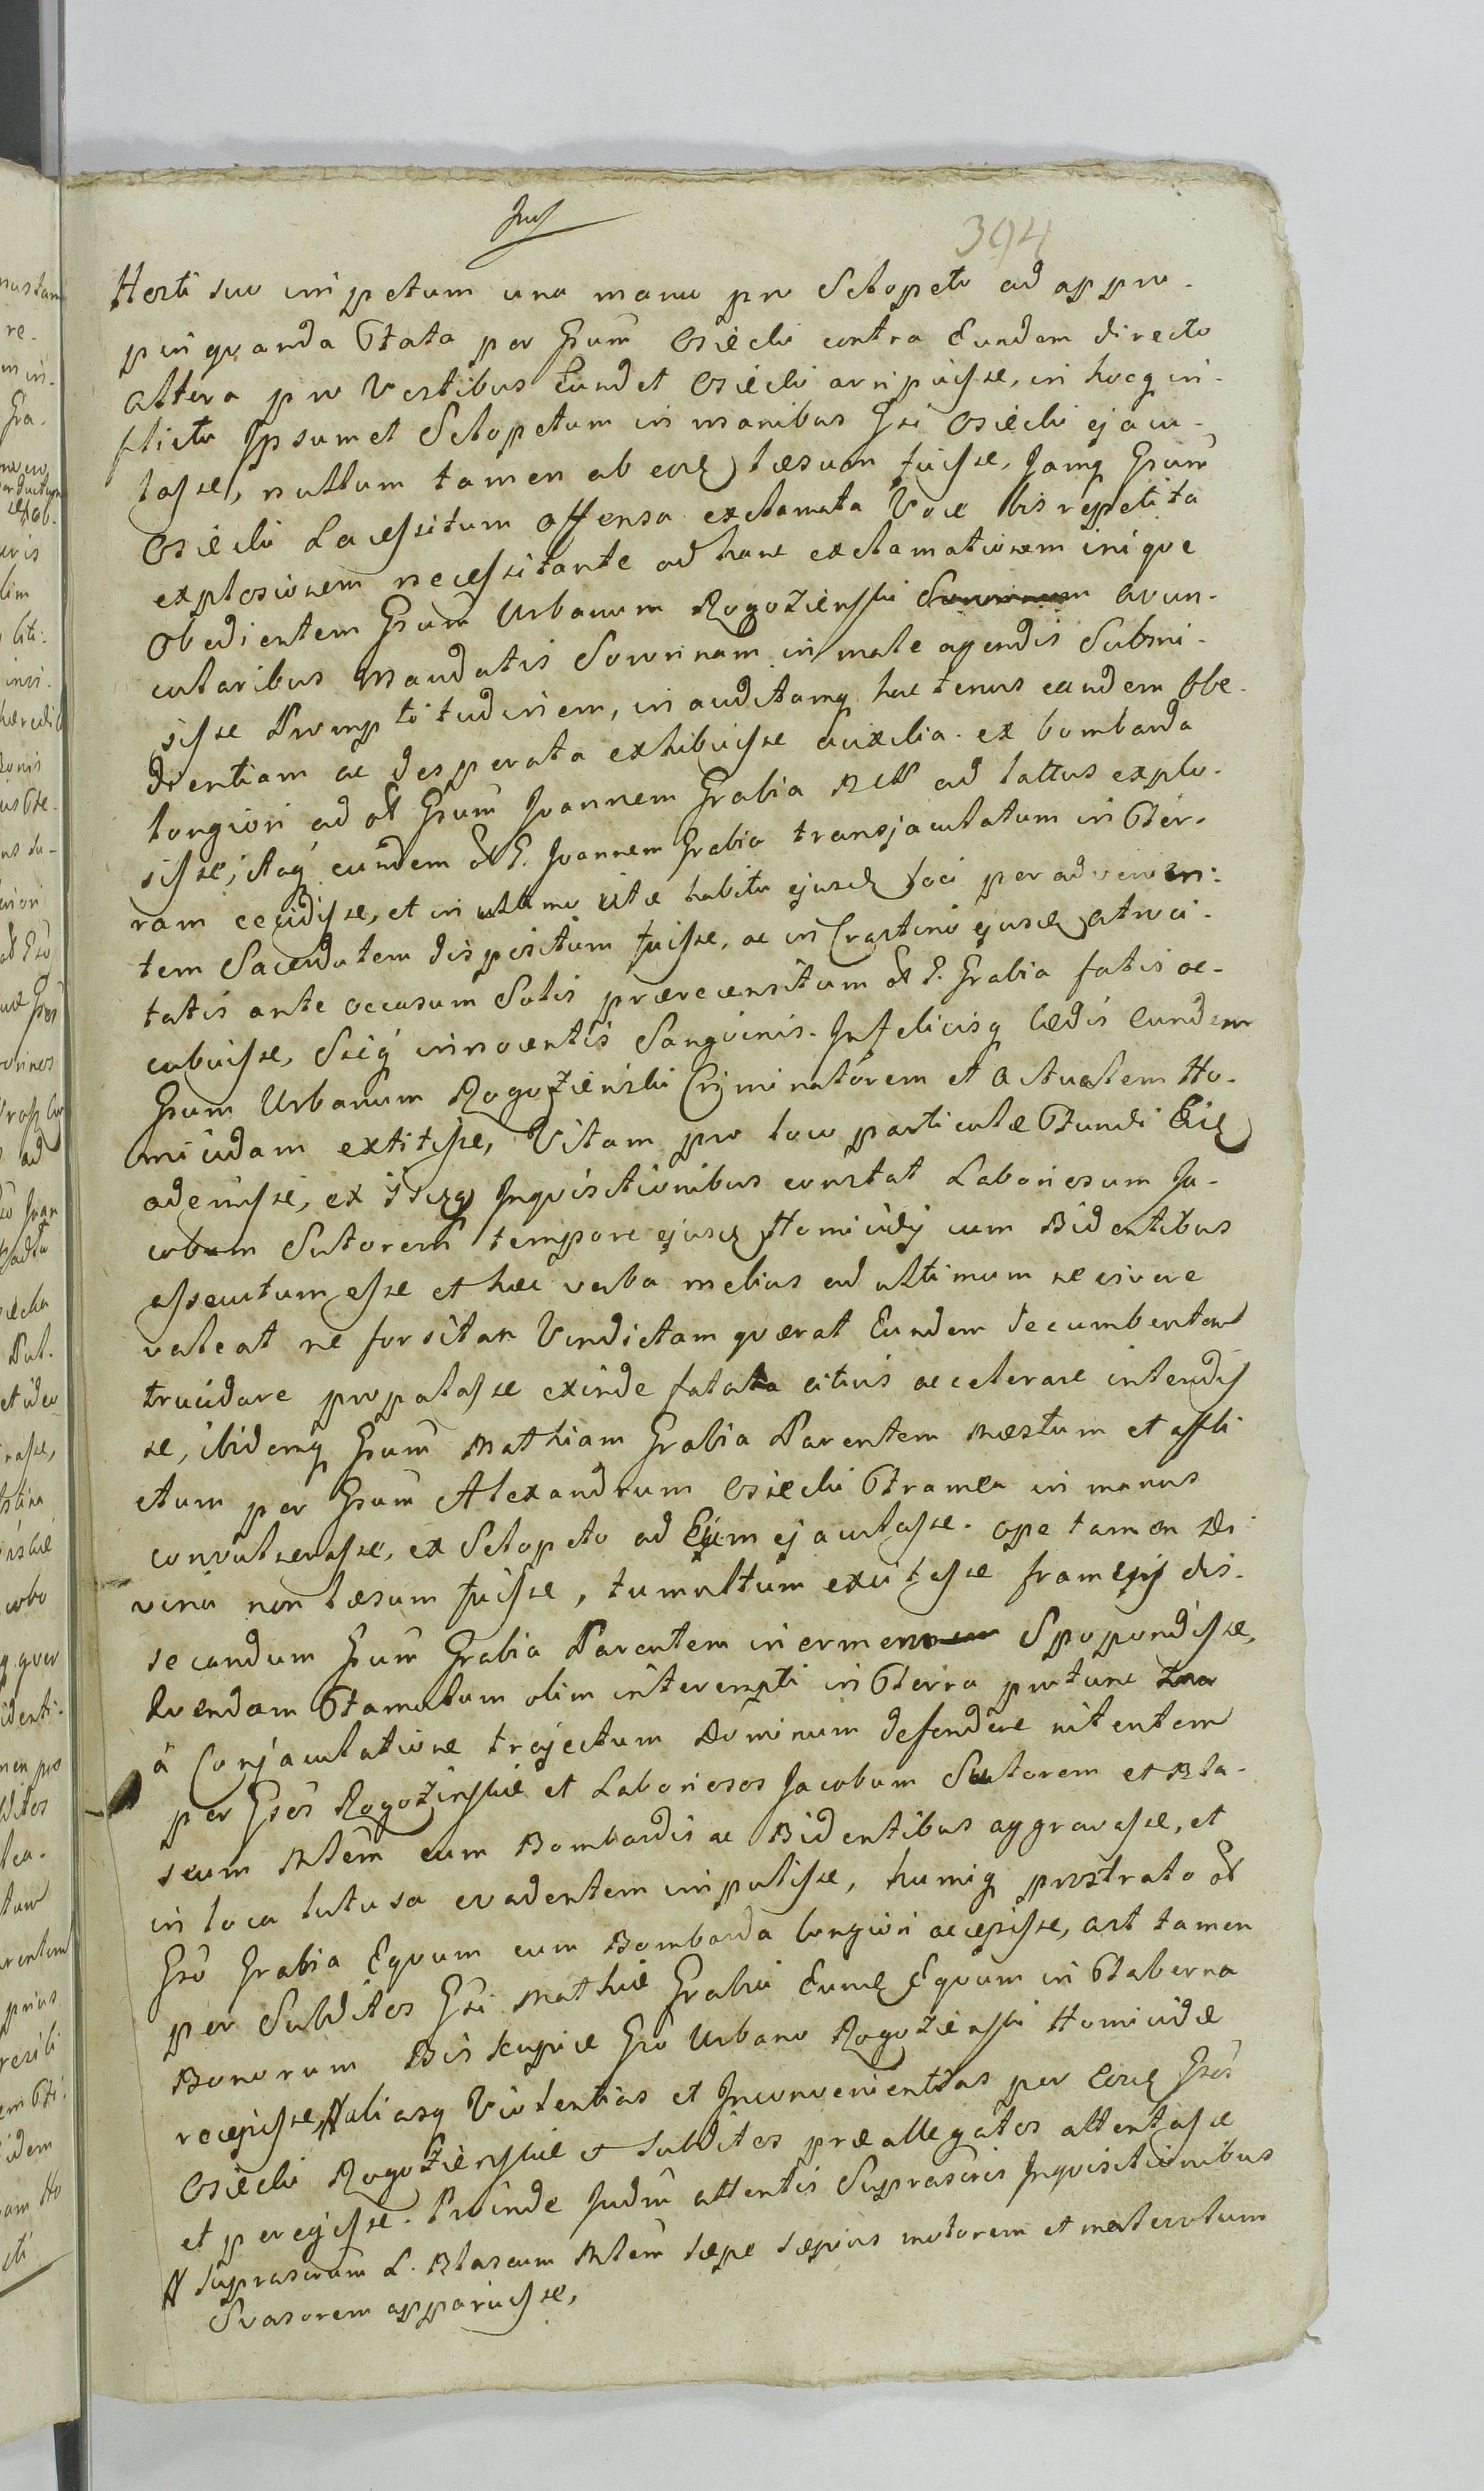 394
Hosti suo impetum una manu pro Sclopeto ad appro-
pinquanda Stata per Gsum Osiecki contra Eundem directo
altera pro Vestibus Eundet Osiecki arripuisse, in hocq in-
flictu Ipsummet Sclopetum in manibus Gsi Osiecki ejacu-
lasse, nullum tamen ab eod læsum fuisse, Jamq Gsum
Osiecki Lacessitum offensa exclamata Voce bis repetita
explosionem necessitante ad hanc exclamationem inique
Obedientem Gsum Urbanum Rogozienski avun-
cularibus Mandatis Sororinam in male agendis Submi-
sisse Promptitudinem, inauditamq hactenus eandem Obe-
dientiam ac desperata exhibuisse auxilia. ex bombarda
longiori ad ol Gsum Joannem Grabia ad lattus explo-
sisse, itaq eundem ol G. Joannem Grabia transjaculatum in Ter-
ram cecidisse, et in ultimo vitæ habitu ejusd loci per advenien-
tem Sacerdotem dispositum fuisse, ac in Crastino ejusd atroci-
tatis ante occasum Solis prærecensitum ol G. Grabia fatis oc-
cubuisse, Sicq innocentis Sangvinis. Infelicisq Cædis Eundem
Gsum Urbanum Rogozienski Criminatorem et Actualem Ho-
micidam extitisse, Vitam pro loco particulæ Fundi Eid
ademisse, ex iisdq Inqvisitionibus constat Laboriosum Ja-
cobum Sutorem tempore ejusd Homicidij cum Bidentibus
assecutum esse et hæc verba melius ad ultimum ne vivere
valeat ne forsitan Vindictam qværat Eundem decumbentem
trucidare propalasse exinde fatata citius accelerare intendis
se, ibidemq Gsum Mathiam Grabia Parentem mæstum et affli
ctum per Gsum Alexandrum Osiecki Framea in manus
convulnerasse, ex Sclopeto ad Eum ejaculasse. ope tamen Di-
vina non læsum fuisse, tumultum excitasse frameis dis-
secandum Gsum Grabia Parentem inermem Spopondisse,
Qvendam Famulum olim interempti in Terra protunc
a Conjaculatione trajectum Dominum defendere nitentem
per Gsos Rogozinskie et Laboriosos Jacobum Sutorem et Bla-
scum cum Bombardis ac Bidentibus aggravasse, et
in loca lutusa evadentem impulisse, humiq prostrato ol
Gso Grabia Eqvum cum Bombarda longiori accepisse, ast tamen
per Subditos Gsi Mathiæ Grabia Eund Eqvum in Taberna
Bonorum Biskupice Gso Urbano Rogozienski Homicidæ
recepisse, # aliasq Violentias et Inconvenientias per eosd Gsos
Osiecki Rogozienskie et Subditos præallegatos attentasse
et peregisse. Proinde Judm attentis Suprascris Inqvisitionibus
# Suprascrum L. Blascum sæpe sæpius motorem et malevolum
Svasorem apparuisse,